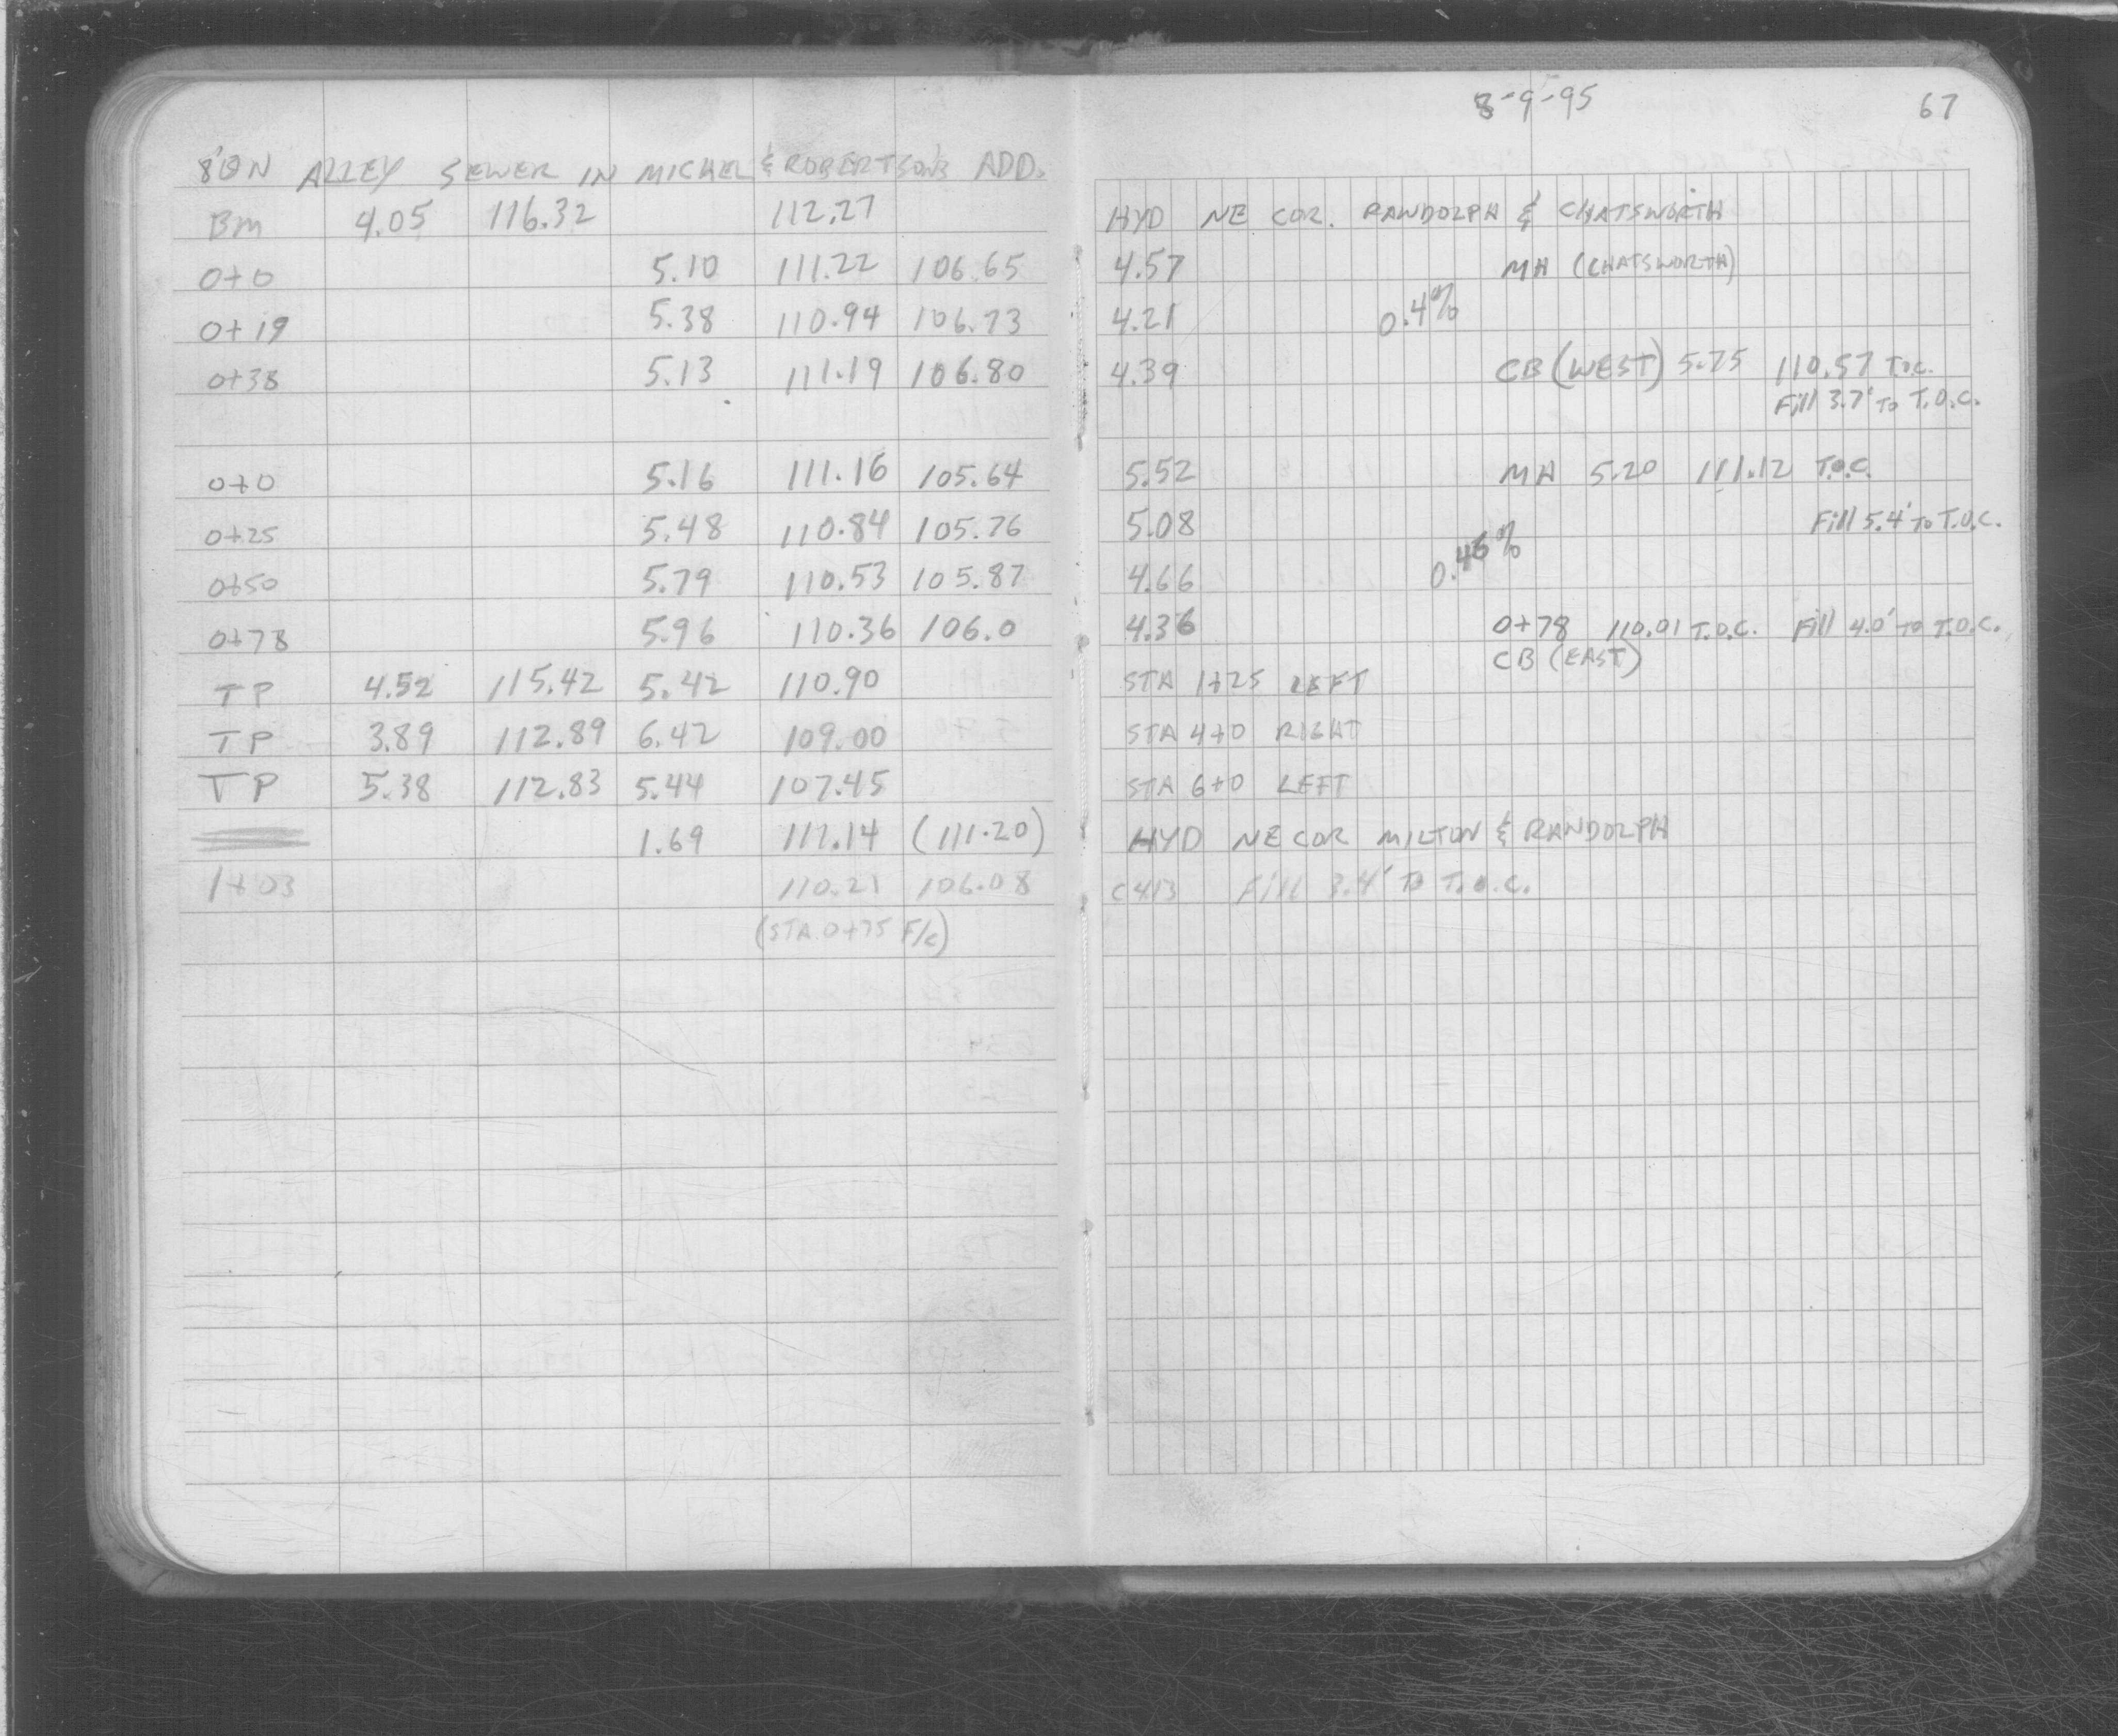 8-9-95 67
ALLEY SEWER IN MICHEL & ROBERTSON'S ADD.
BM 4.05 116.32 112.27 HYD NE COR. RANDOLPH & CHATSWORTH
0+0 5.10 111.22 106.65 4.57 MH (CHATSWORTH)
0+19 5.38 110.94 106.73 4.21 0.4%
0+38 5.13 111.19 106.80 4.39 CB (WEST) 5.75 110.57 T.O.C.
Fill 3.7' TO T.O.C.
0+0 5.16 111.16 105.64 5.52 MH 5.20 111.12 T.O.C.
0+25 5.48 110.84 105.76 5.08 Fill 5.4' TO T.O.C.
0+50 5.79 110.53 105.87 4.66
0+78 5.96 110.36 106.0 4.36 0+78 110.01 T.O.C. Fill 4.0' TO T.O.C.
CB (EAST)
TP 4.52 115.42 5.42 110.90 STA 1+25 LEFT
TP 3.89 112.89 6.42 109.00 STA 4+0 RIGHT
TP 5.38 112.83 5.44 107.45 STA 6+0 LEFT
1.69 111.14 (111.20) HYD NE COR MILTON & RANDOLPH
1+03 110.21 106.08 C 4.13 Fill 3.4' TO T.O.C.
(STA. 0+75 F/C)